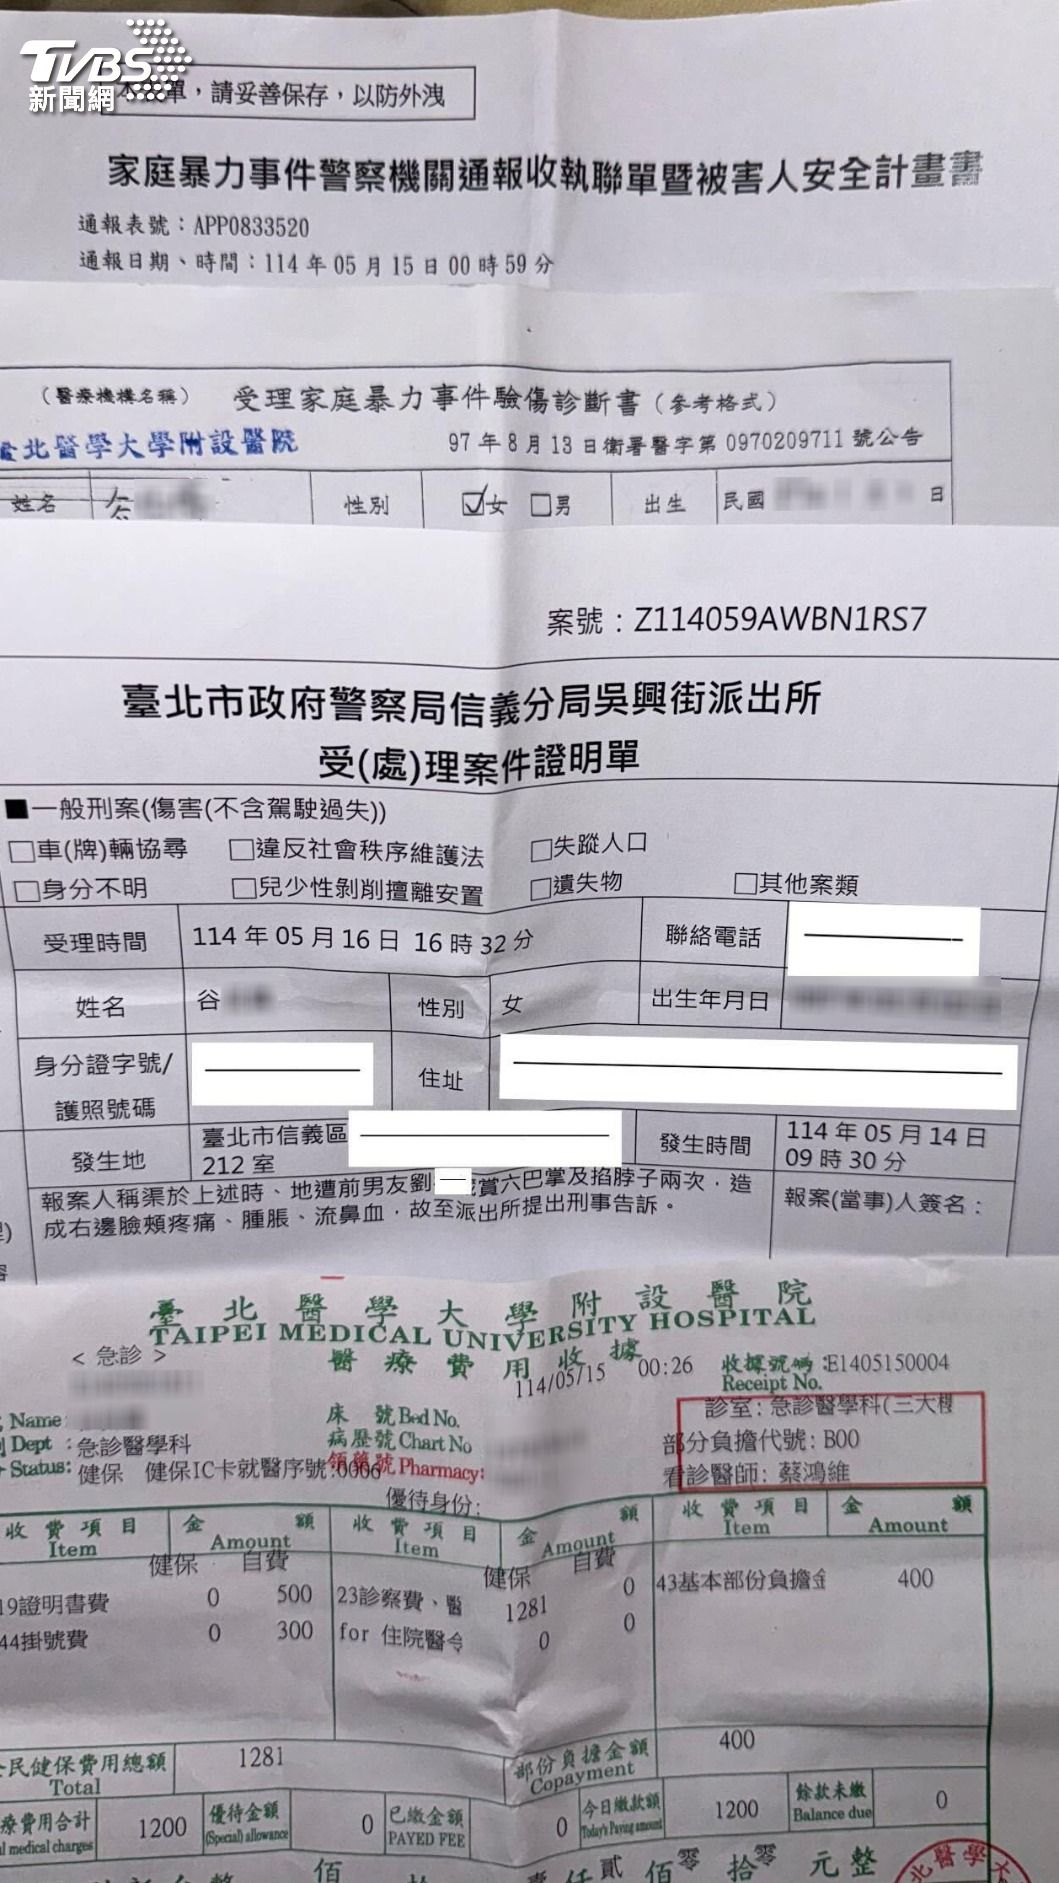 TVBS
新聞網
單,請妥善保存,以防外洩
家庭暴力事件警察機關通報收執聯單暨被害人安全計畫書
通報表號:APP0833520
通報日期、時間:114年05月15日00時59分
(醫療機構名稱) 受理家庭暴力事件驗傷診斷書(參考格式)
北醫學大學附設醫院 97年8月13日衛署醫字第0970209711號公告
姓名 谷 性別 ☑女 □男 出生 民國 日
案號:Z114059AWBN1RS7
臺北市政府警察局信義分局吳興街派出所
受(處)理案件證明單
■一般刑案(傷害(不含駕駛過失))
□車(牌)輛協尋 □違反社會秩序維護法 □失蹤人口
□身分不明 □兒少性剝削擅離安置 □遺失物 □其他案類
受理時間 114年05月16日 16時32分 聯絡電話
姓名 谷 性別 女 出生年月日
身分證字號/
護照號碼 住址
發生地 臺北市信義區
212室 發生時間 114年05月14日
09時30分
報案人稱渠於上述時、地遭前男友劉 賞六巴掌及掐脖子兩次,造
成右邊臉頰疼痛、腫脹、流鼻血,故至派出所提出刑事告訴。
報案(當事)人簽名:
臺北醫學大學附設醫院
TAIPEI MEDICAL UNIVERSITY HOSPITAL
<急診> 醫療費用收據
114/05/15 00:26 收據號碼:E1405150004
Receipt No.
Name: 床號Bed No. 診室:急診醫學科(三大樓
Dept:急診醫學科 病歷號Chart No 部分負擔代號:B00
Status:健保 健保IC卡就醫序號:0006 領藥號Pharmacy: 看診醫師:蔡鴻維
優待身份:
收費項目 金額 收費項目 金額 收費項目 金額
Item Amount Item Amount Item Amount
健保 自費 健保 自費
19證明書費 0 500 23診察費、醫 1281 0 43基本部份負擔金 400
44掛號費 0 300 for 住院醫令 0 0
民健保費用總額 1281 部份負擔金額 400
Total Copayment
療費用合計 1200 優待金額 0 已繳金額 0 今日繳款額 1200 餘款未繳 0
medical charges (Special) allowance PAYED FEE Today's Paying amount Balance due
佰 仟貳佰零拾零元整
北醫學大